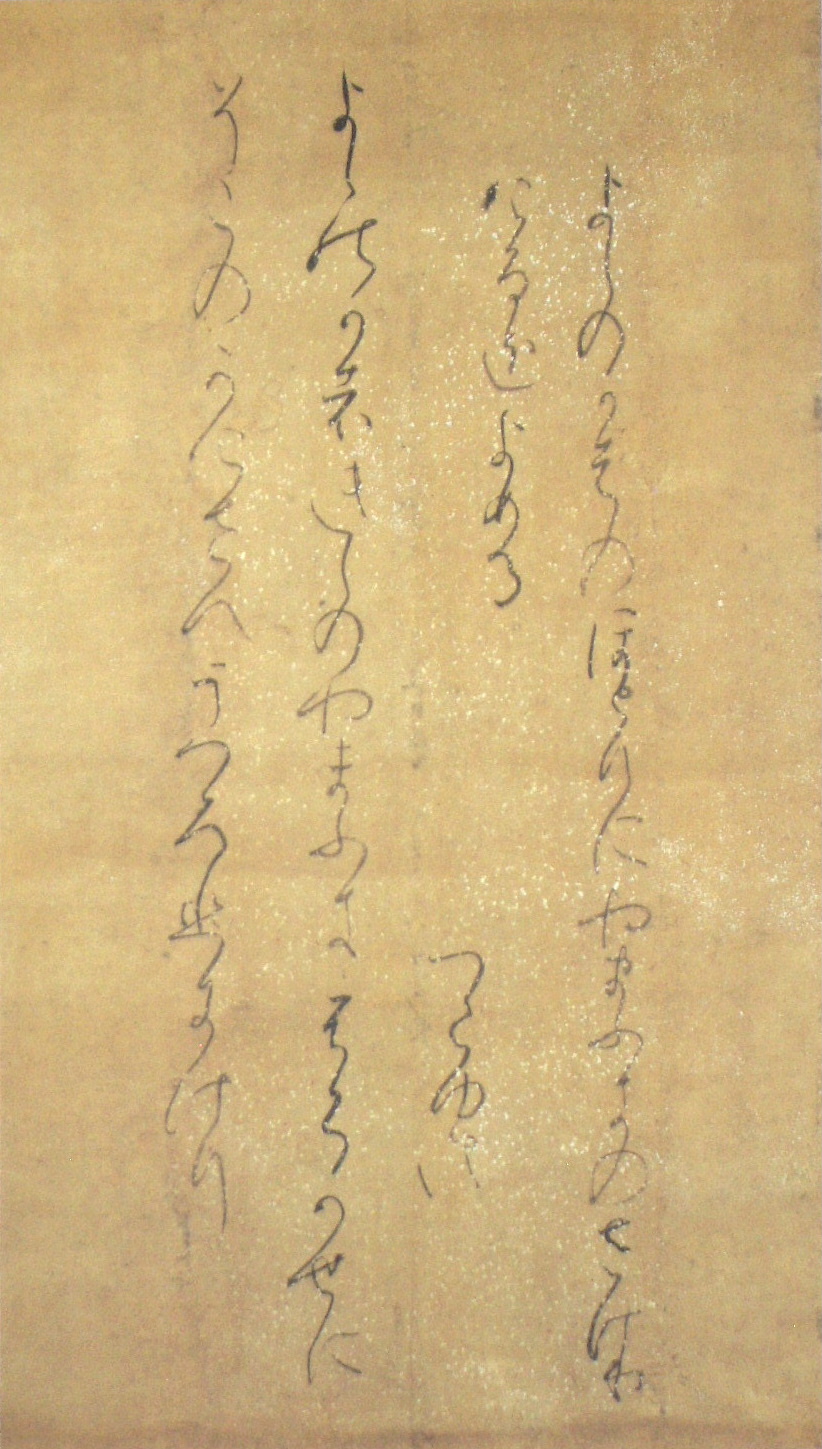 よしのかはのほとりにやまふきのさけり
けるをよめる
つらゆき
よしのかはきしのやまふきふくかせに
そこのかけさへうつろひにけり